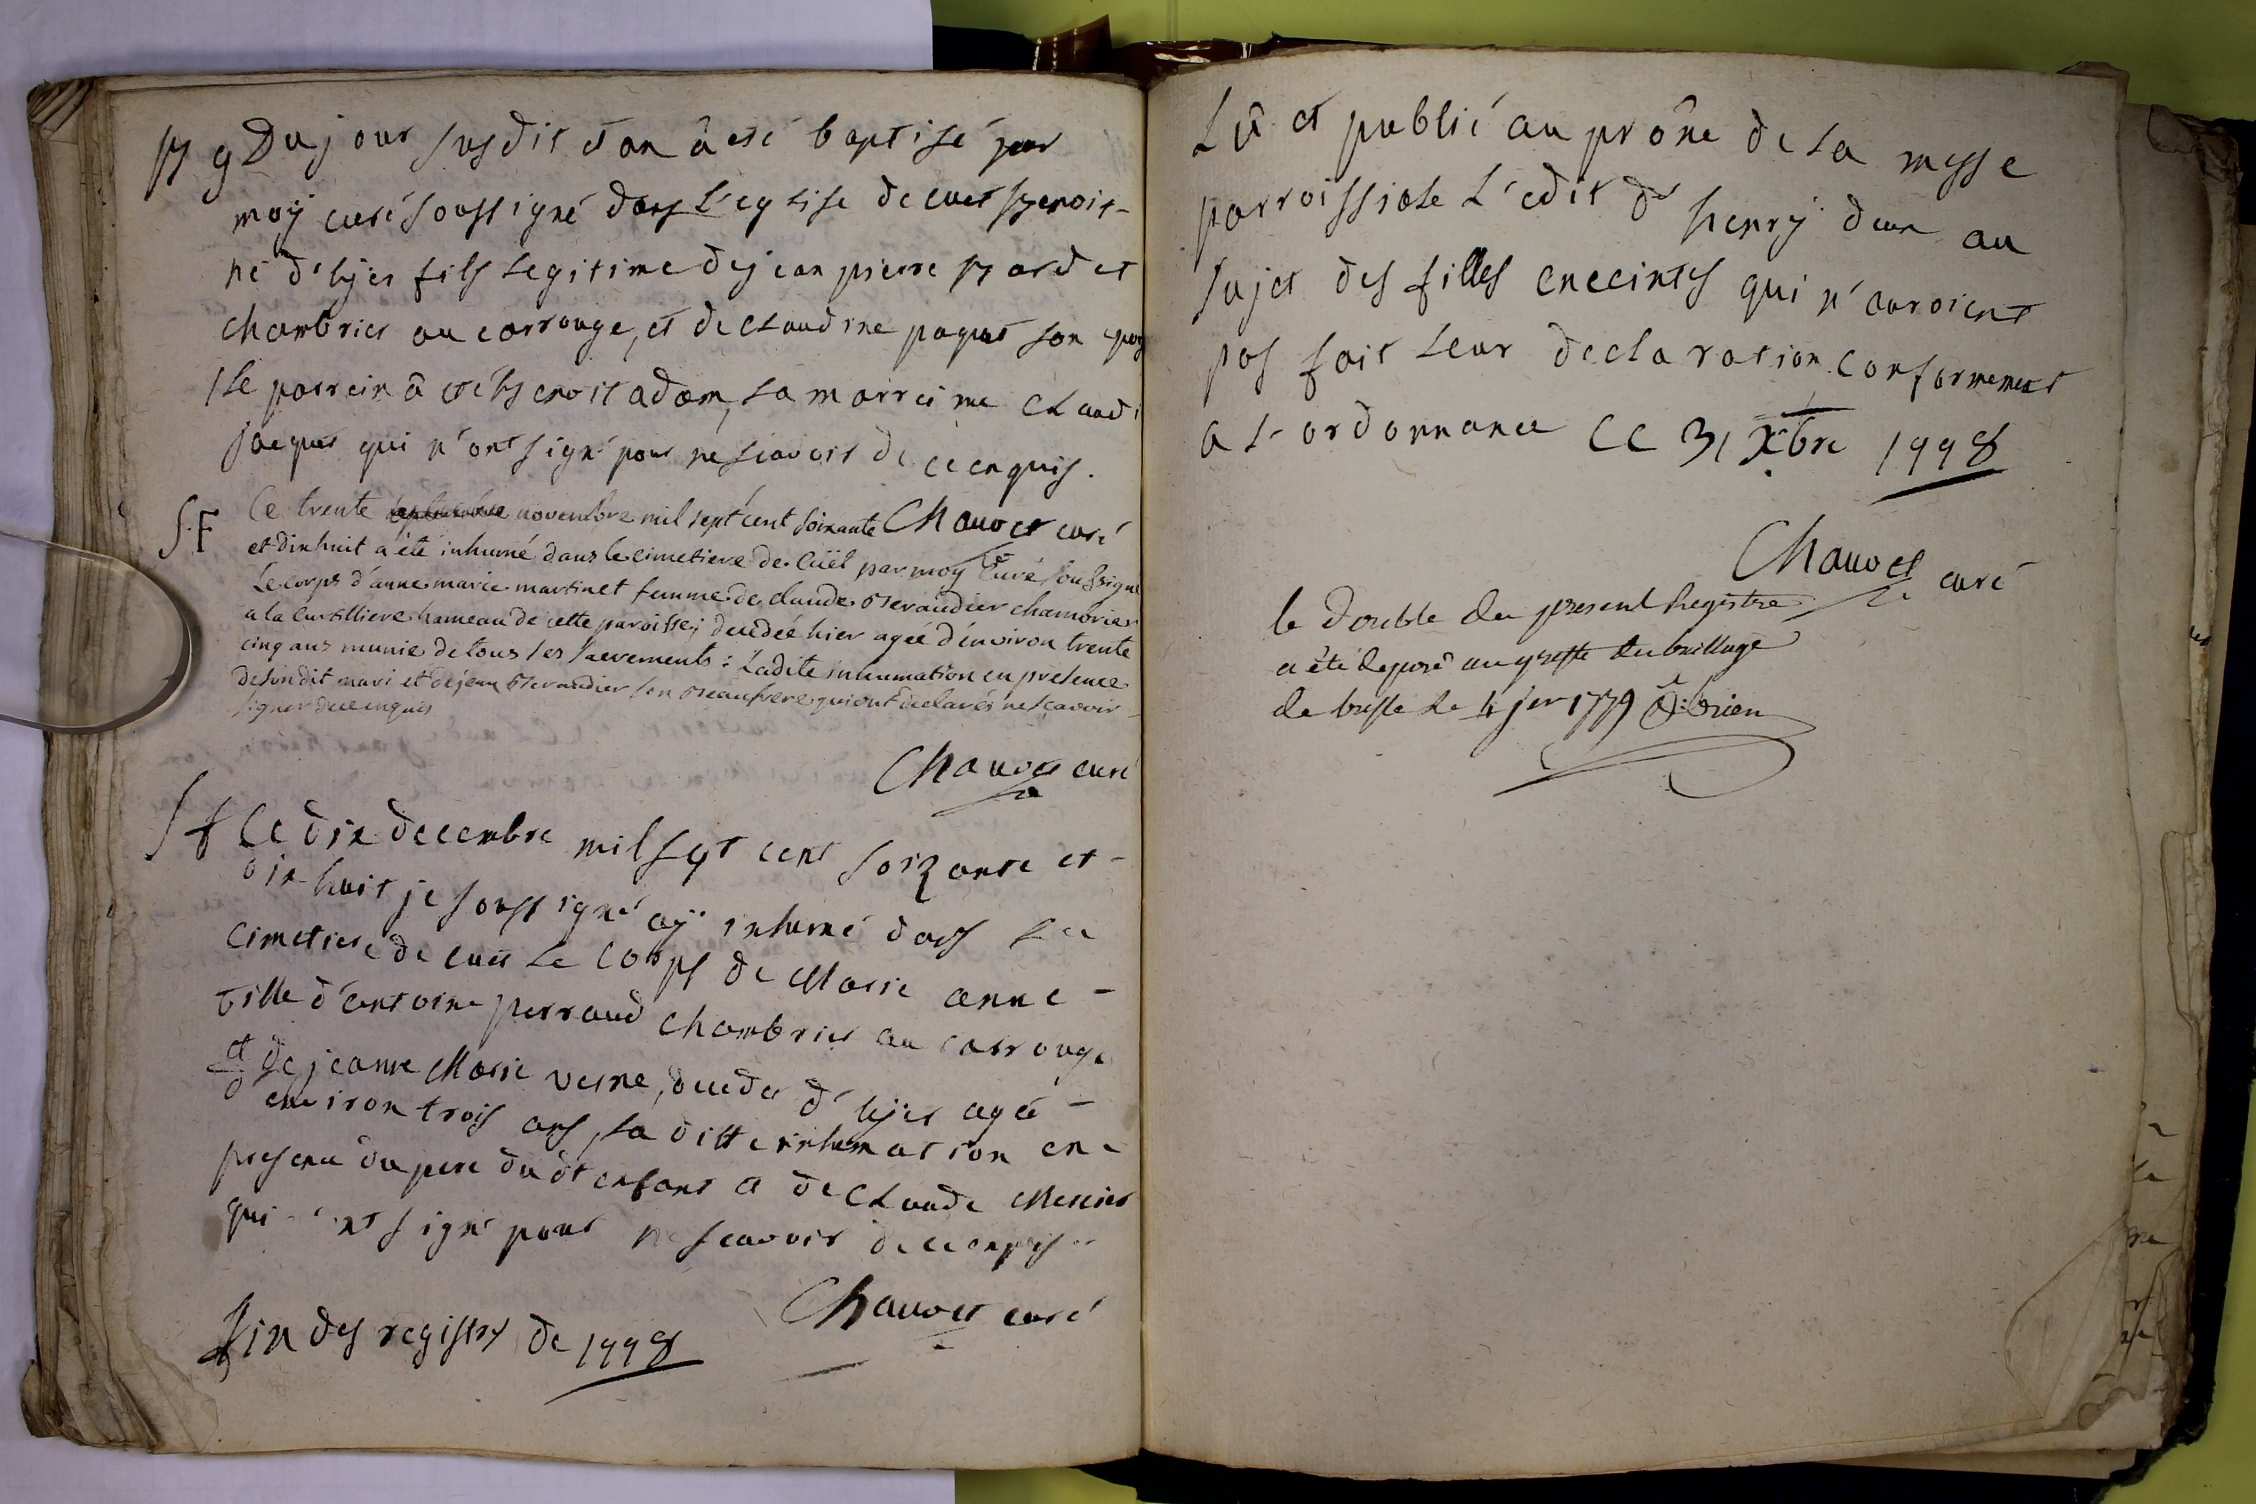 B g Du jour susdit et an â eté baptisé par
moÿ curé soussigné dans L'eglise de cuet Benoit
né d'hÿer fils Legitime de jean pierre Bardet
chambrier au carrouge, et de claudine paquet son epo
Le parrein â eté benoit adam, La marreine claudi
jaquet qui n'ont signé pour ne scavoir de ce enquis.
Chauvet curé
S. F Ce trente novembre mil sept cent soixante
et dix huit a été inhumé dans le cimetiere de Cüët par moy Curé soussigné
Le corps d'anne marie martinet femme de claude beraudier chambrier
a la Curtilliere hameau de cette paroisse; decedée hier agée d'environ trente
cinq ans munie de tous les sacrements: Ladite inhumation en presence
de son dit mari et de jean beraudier son beaufrere qui ont declarés ne scavoir
signer de ce enquis
Chauvet curé
S f Ce dix decembre mil sept cent soixante et
dix-huit je soussigné aÿ inhumé dans Le
cimetiere de cuet Le corps de Marie anne
fille d'antoine perraud chambrier au carrouge
et de jeanne Marie verne, decedée d'hÿer agée
environ trois ans, La ditte inhumation en
presence du pere du dt enfant et de claude Mercier
qui n'ont signé pour ne scavoir de ce enquis
Chauvet curé
Fin des registres de 1778
Lû et publié au prône de La messe
parroissiale L'edit d' henrÿ deux au
sujet des filles enceintes qui n'auroient
pas fait Leur declaration conformement
a L'ordonnance ce 31 Xbre 1778
Chauvet curé
le double du present Registre
a été deposé au greffe du bailliage
de bresse le 4 jer 1779